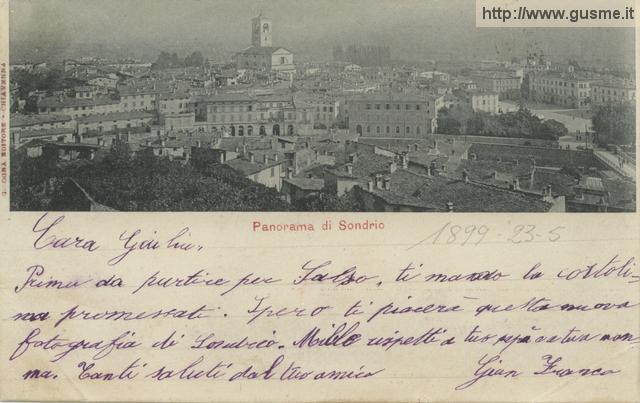 http://www.gusme.it
Panorama di Sondrio
1899-23-5
Cara
Prima da partire per Salso, ti mando la cartoli-
na promessati. Spero ti piacerà questa nuova
fotografia di Sondrio. Mille rispetti a tuo papà a tua mam-
ma. Tanti saluti dal tuo amico
Gian Franco